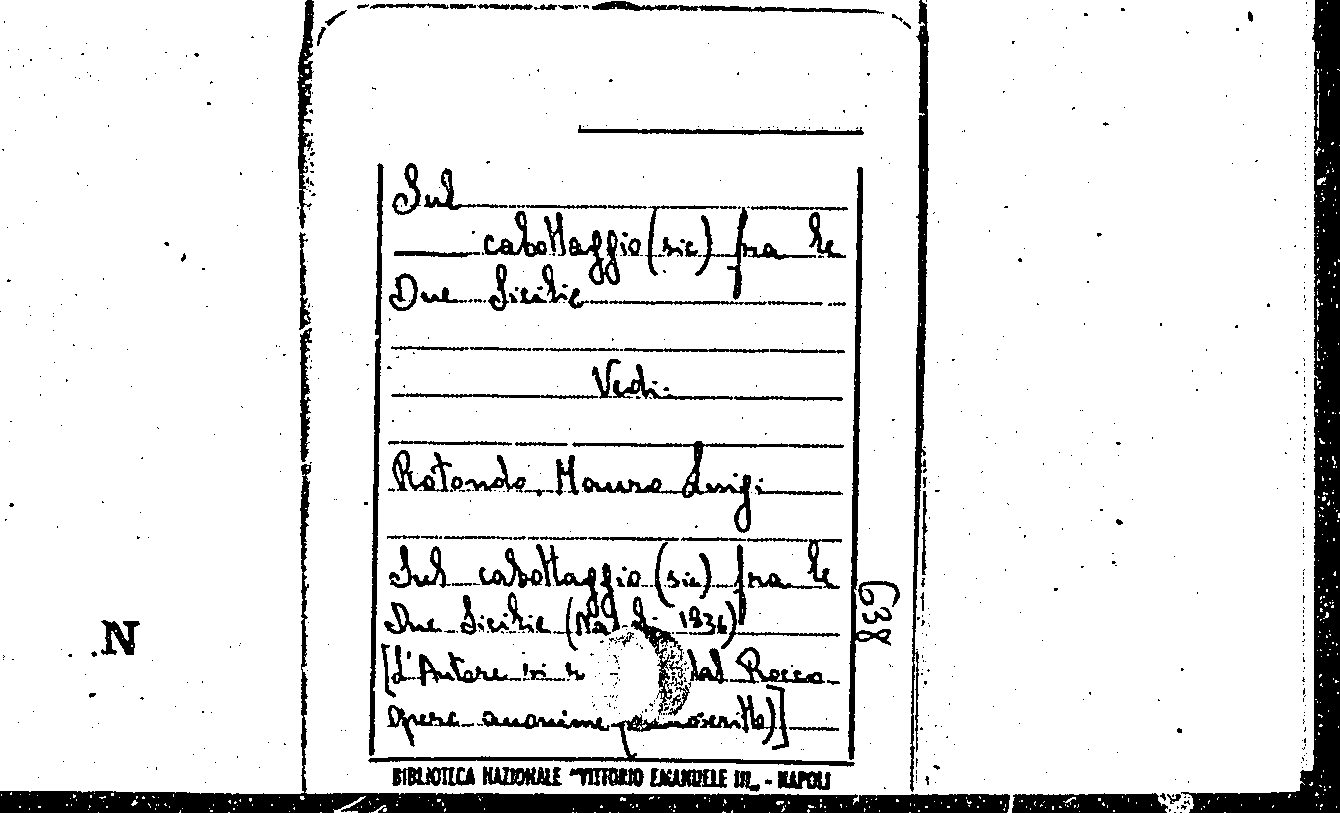 Sul
cabottaggio (sic) fra le
Due Sicilie
Vedi:
Rotondo, Mauro Luigi
Sul cabottaggio (sic) fra le
Due Sicilie (Na li 1836)
[L'Autore si dal Rocco
opere anonime
BIBLIOTECA NAZIONALE "VITTORIO EMANUELE III„ - NAPOLI
638
N